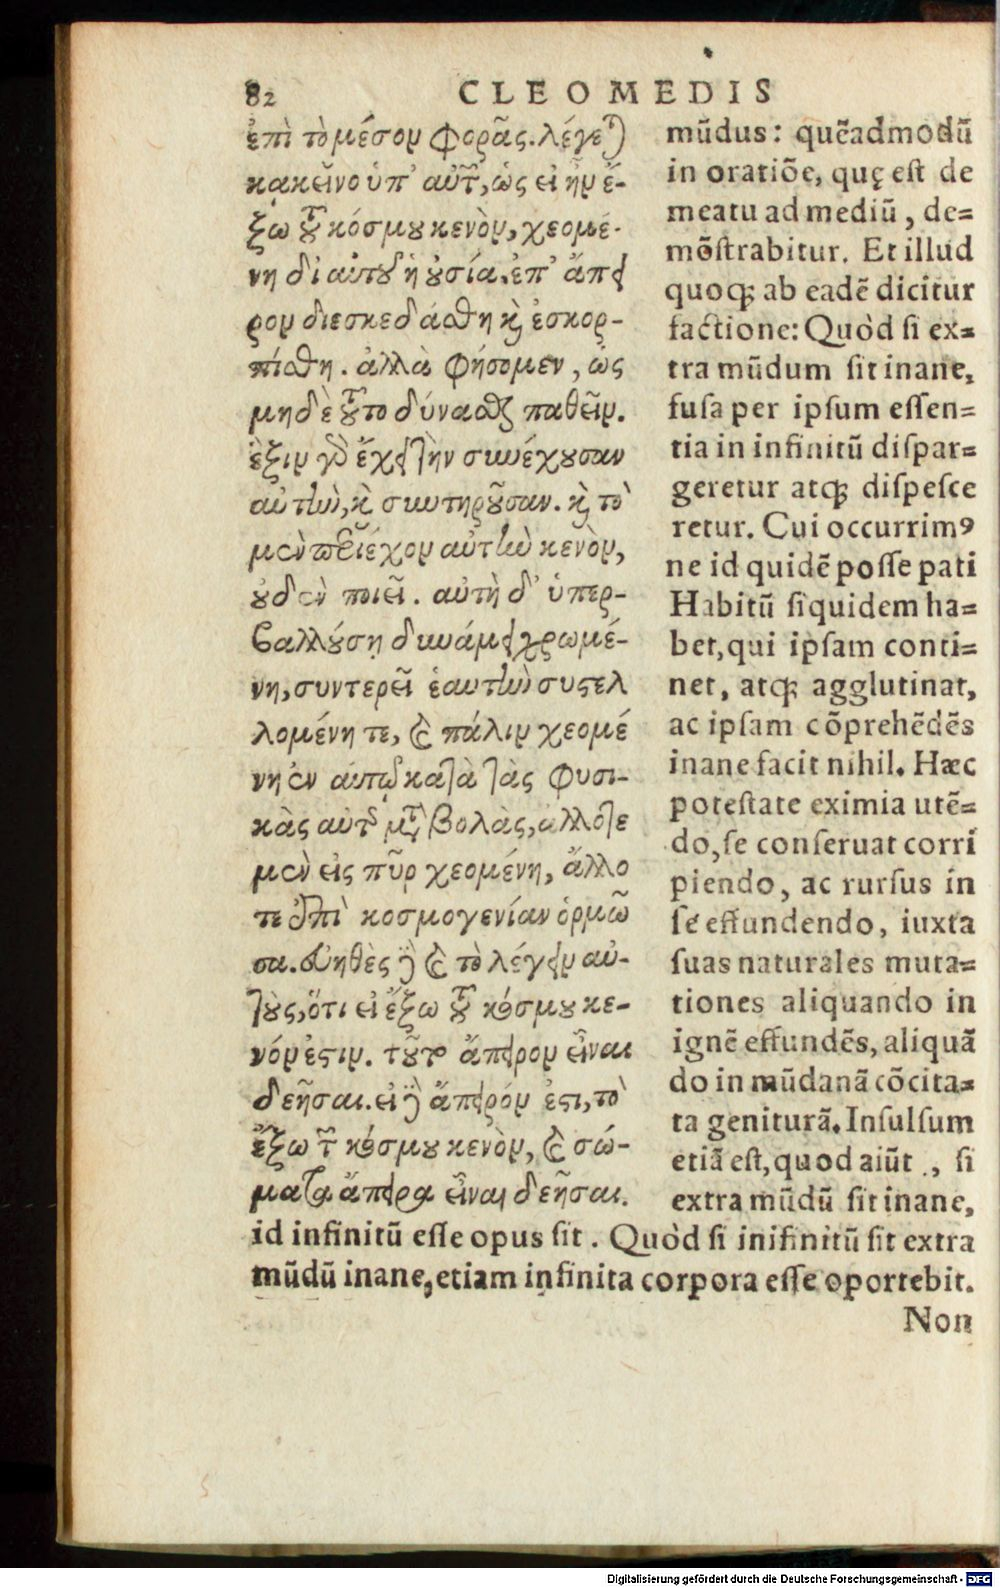 82 CLEOMEDIS
ἐπὶ τὸ μέσον φορᾶς. λέγε)
κἀκεῖνο ὑπ' αὐτ, ὡς εἰ ἦν ἔ-
ξω τ κόσμου κενὸν, χεομέ-
νη δι' αὐτοῦ ἡ οὐσία, ἐπ' ἄπει
ρον διεσκεδάσθη καὶ ἐσκορ-
πίσθη. ἀλλὰ φήσομεν, ὡς
μηδὲ τοῦτο δύνασθαι παθεῖν.
ἕξιν γὸ ἔχει τὴν συνέχουσαν
αὐτὴν, καὶ συντηροῦσαν. καὶ τὸ
μὲν περιέχον αὐτὴν κενὸν,
οὐδὲν ποιεῖ. αὐτὴ δ' ὑπερ-
βαλλούσῃ δυνάμει χρωμέ-
νη, συντερεῖ ἑαυτὴν συστελ
λομένη τε, καὶ πάλιν χεομέ
νη ἐν αὐτῷ κατὰ τὰς φυσι-
κὰς αὐτ μ βολὰς, ἄλλοτε
μὲν εἰς πῦρ χεομένη, ἄλλο
τε ἐπὶ κοσμογενίαν ὁρμῶ
σα. εὐηθὲς δὲ καὶ τὸ λέγειν αὐ-
τοὺς, ὅτι εἰ ἔξω τ κόσμου κε-
νόν ἐστιν. τοῦτο ἄπειρον εἶναι
δεῆσαι. εἰ δὲ ἄπειρόν ἐστι, τὸ
ἔξω τ κόσμου κενὸν, καὶ σώ-
ματα ἄπειρα εἶναι δεῆσαι.
mũdus: quẽadmodũ
in oratiõe, quę est de
meatu ad mediũ, de=
mõstrabitur. Et illud
quoq; ab eadẽ dicitur
factione: Quòd si ex=
tra mũdum sit inane,
fusa per ipsum essen=
tia in infinitũ dispar=
geretur atq; dispesce
retur. Cui occurrimꝰ
ne id quidẽ posse pati
Habitũ siquidem ha=
bet, qui ipsam conti=
net, atq; agglutinat,
ac ipsam cõprehẽdẽs
inane facit nihil. Hæc
potestate eximia utẽ=
do, se conseruat corri
piendo, ac rursus in
se effundendo, iuxta
suas naturales muta=
tiones aliquando in
ignẽ effundẽs, aliquã
do in mũdanã cõcita=
ta geniturã. Insulsum
etiã est, quod aiũt , si
extra mũdũ sit inane,
id infinitũ esse opus sit. Quòd si inifinitũ sit extra
mũdũ inane, etiam infinita corpora esse oportebit.
Non
Digitalisierung gefördert durch die Deutsche Forschungsgemeinschaft - DFG